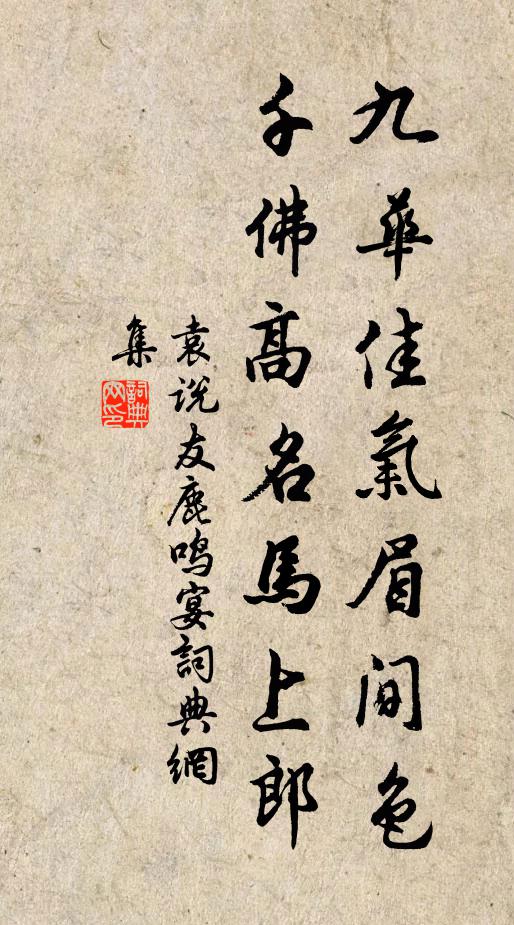 九華佳氣眉間色
千佛高名馬上郎
袁說友鹿鳴宴詞典網
集
詞典
网印